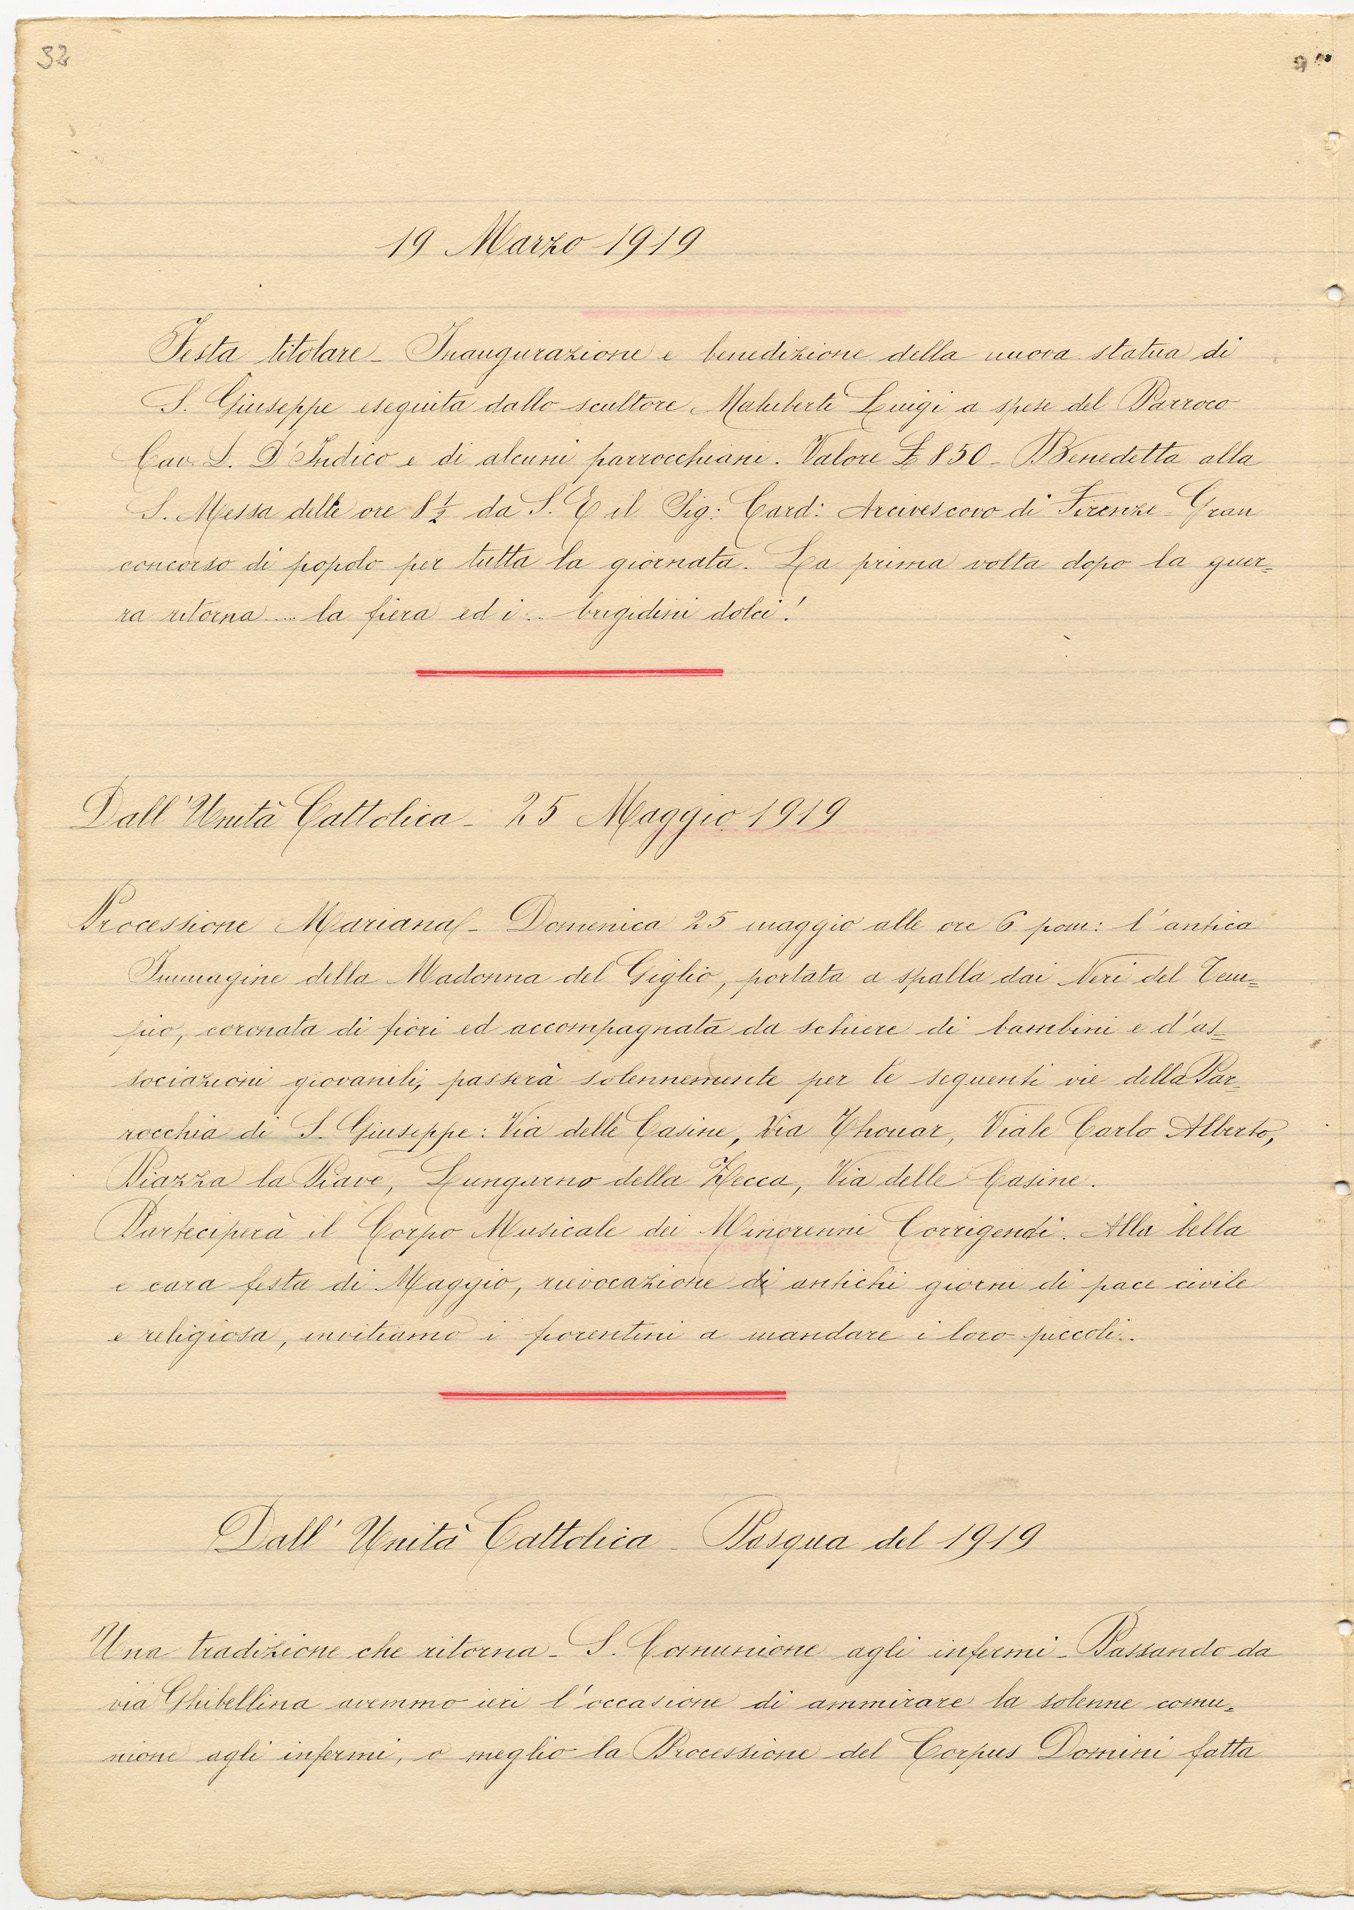 32
19 Marzo 1919
Festa titolare - Inaugurazione e benedizione della nuova statua di
S. Giuseppe eseguita dallo scultore Maluberti Luigi a spese del Parroco
Cav. L. D'Indico e di alcuni parrocchiani. Valore £ 850 - Benedetta alla
S. Messa delle ore 8½ da S. E il Sig: Card: Arcivescovo di Firenze - Gran
concorso di popolo per tutta la giornata. La prima volta dopo la guer=
ra ritorna .... la fiera ed i ... brigidini dolci!
Dall'Unità Cattolica - 25 Maggio 1919
Processione Mariana - Domenica 25 maggio alle ore 6 pom: l'antica
Immagine della Madonna del Giglio, portata a spalla dai Neri del Tem=
pio, coronata di fiori ed accompagnata da schiere di bambini e d'as=
sociazioni giovanili, passerà solennemente per le seguenti vie della Par=
rocchia di S. Giuseppe: Via delle Casine, Via Thouar, Viale Carlo Alberto,
Piazza la Piave, Lungarno della Zecca, Via delle Casine.
Parteciperà il Corpo Musicale dei Minorenni Corrigendi. Alla bella
e cara festa di Maggio, rievocazione di antichi giorni di pace civile
e religiosa, invitiamo i fiorentini a mandare i loro piccoli..
Dall' Unità Cattolica - Pasqua del 1919
Una tradizione che ritorna - S. Comunione agli infermi - Passando da
via Ghibellina avemmo ieri l'occasione di ammirare la solenne comu=
nione agli infermi, o meglio la Processione del Corpus Domini fatta